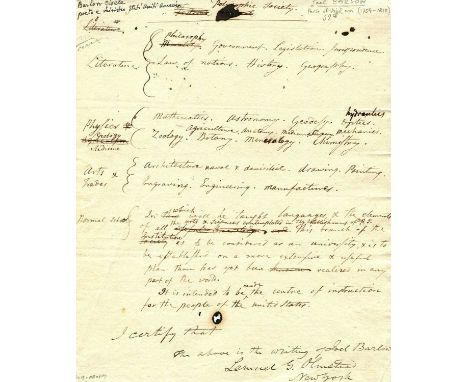 Barlow
Society.
Joel BARLOW
Literature
philosophy
Government. Legislation. Jurisprudence
Literature
Law of nations. History. Geography.
hydraulics
Mathematics. Astronomy. Geodesy. Optics.
Physics &
agriculture anatomy mechanics.
Zoology. Botany. Mineralogy. Chymistry.
Medicine
Architecture naval & domestic. drawing. Painting.
Arts &
Trades
Engraving. Engineering. manufactures.
Normal School
In which will be taught Languages & the elements
of all the arts & sciences contemplated in the
This branch of the
Institution
is to be considered as an university & is to
be established on a more extensive & useful
plan than has yet been realised in any
part of the world.
It is intended to be made the centre of instruction
for the people of the united States.
I certify that
the above is the writing of Joel Barlow
Lemuel G. Olmstead
New York